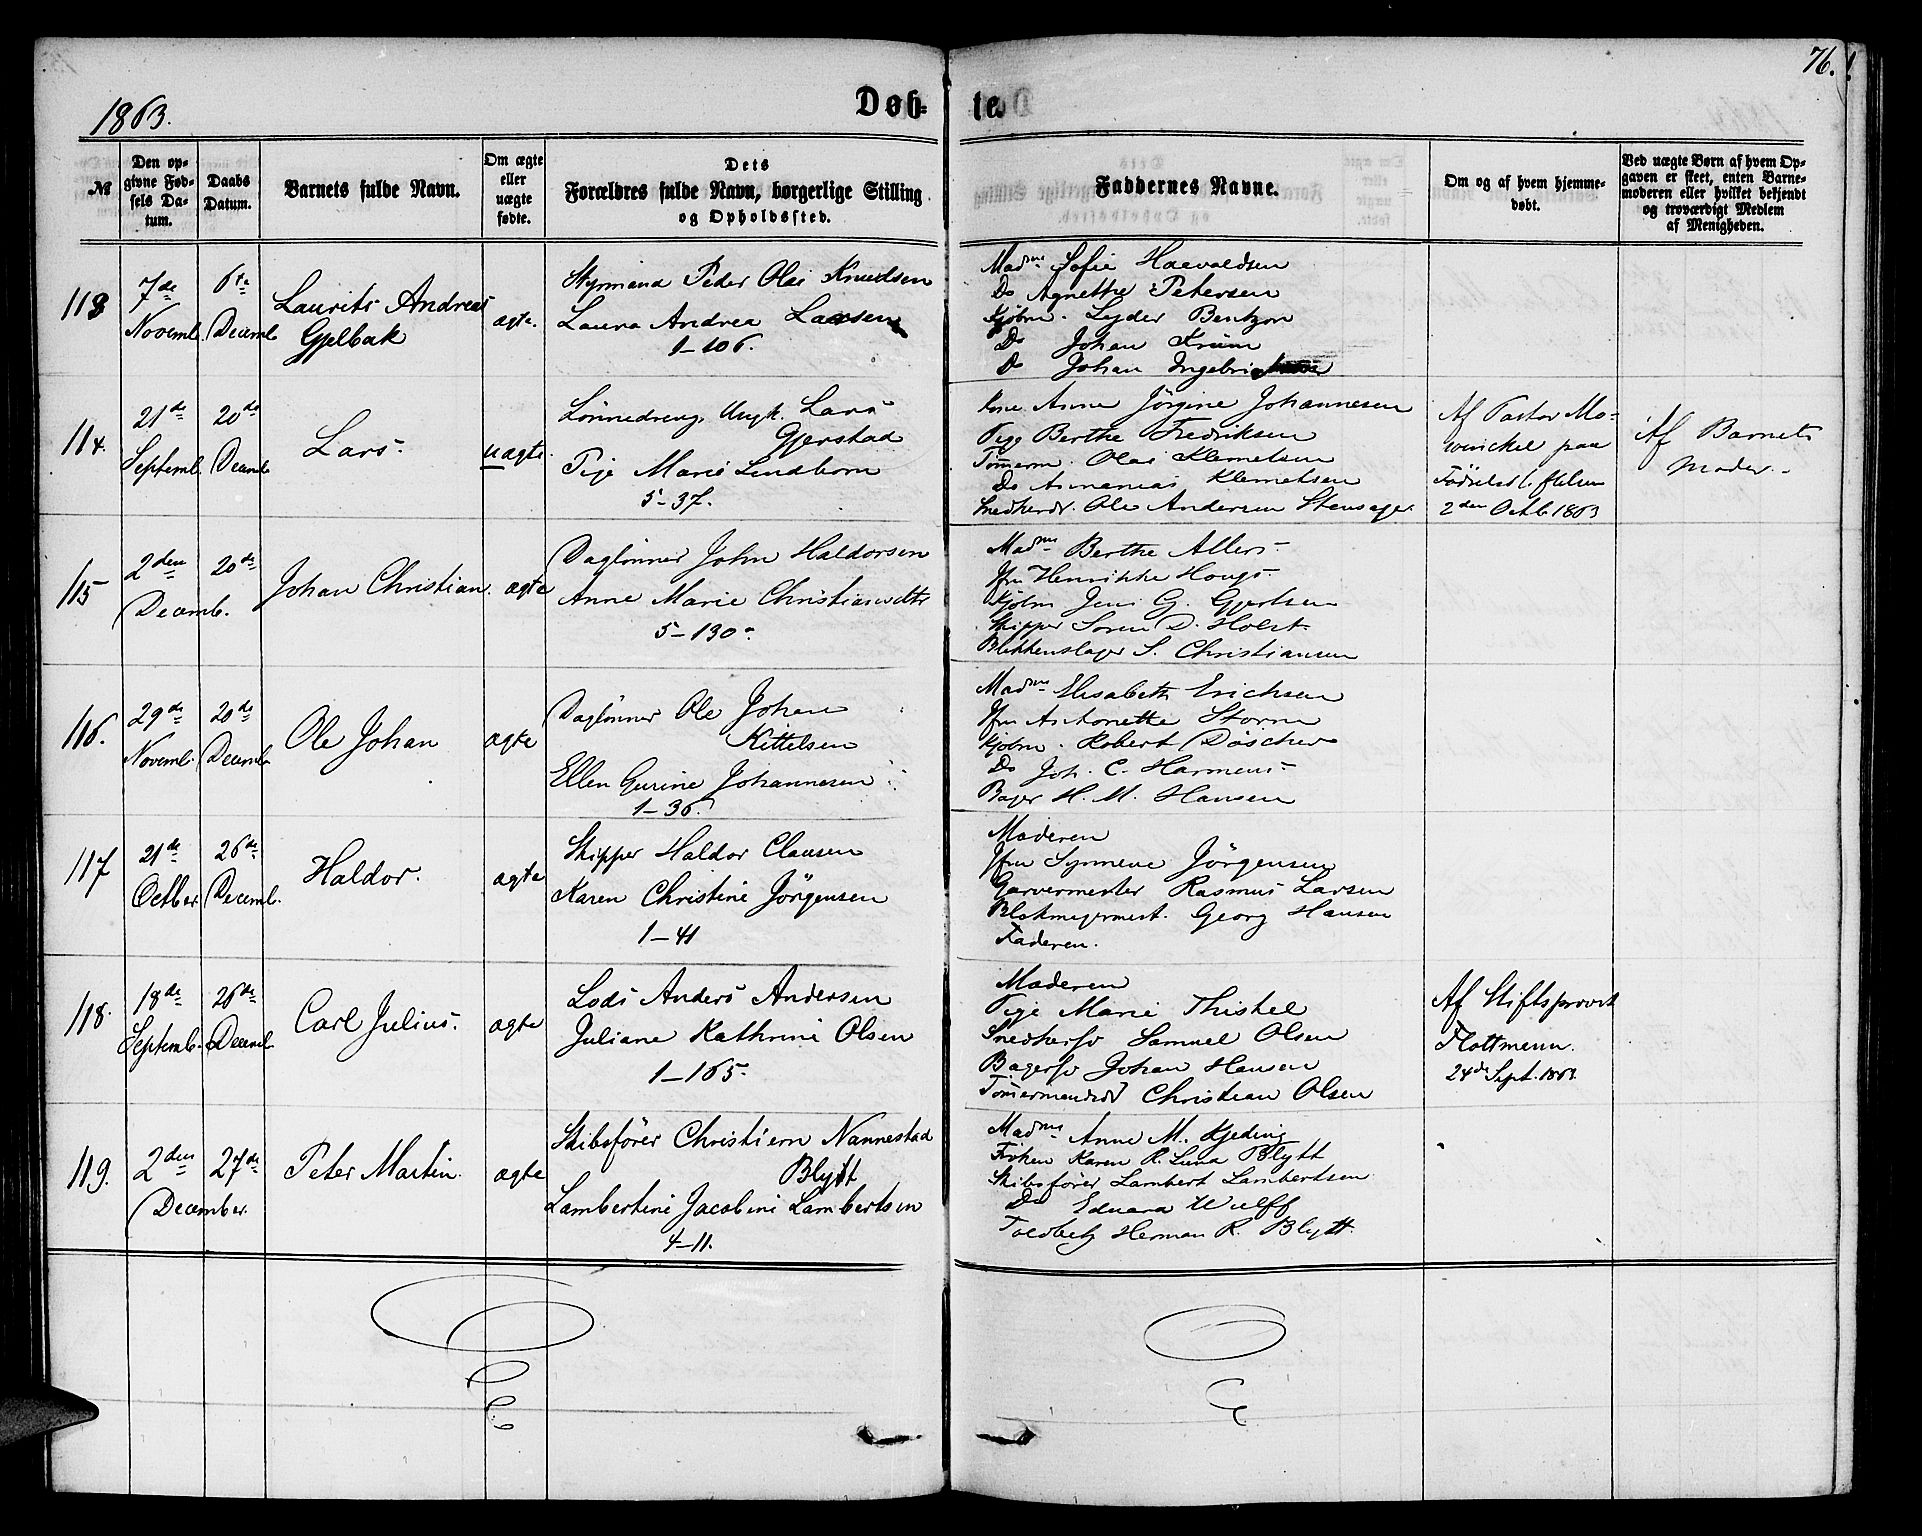 76.
1863.
Døb-
te
№
Den op-
givne Fød-
sels Da-
tum.
Daabs
Datum.
Barnets fulde Navn.
Om ægte
eller
uægte
fødte.
Dets
Forældres fulde Navn, borgerlige Stilling
og Opholdssted.
Faddernes Navne.
Om og af hvem hjemme-
døbt.
Ved uægte Børn af hvem Op-
gaven er skeet, enten Barne-
moderen eller hvilket bekjendt
og troværdigt Medlem
af Menigheden.
113
7de
Novemb.
6te
Decemb.
Laurits Andreas
Gjelbak
ægte.
Styrmand Peder Olai Knudsen
Laura Andrea Larsen
1-106.
Madme Sofie Haavaldsen
Do Agnethe Petersen
Kjøbm. Lyder Bentzon
Do Johan Krüm
Do Johan
114.
21de
Septemb.
20de
Decemb.
Lars.
uægte.
Lönnedreng, Ungk. Lars
Gjerstad
Pige Marie Lindborn
5-37.
Kone. Anne Jörgine Johannesen
Pige Berthe Fredriksen
Tømmerm. Olai Klemetsen
Do Ananias Klemetsen
Ole Andersen Stensager
Af Pastor Mo-
winckel paa
Födselsstiftelsen
2den Octb. 1863
Af Barnets
Moder.
115
2den
Decemb.
20de
Johan Christian.
ægte
Daglönner John Haldorsen
Anne Marie Christiansdtr
5-130.
Madme Berthe Allers
Jfru Henrikke Houge.
Kjöbm Jens G. Gjertsen
Skipper Søren D. Holst.
Blikkenslager S. Christiansen
116.
29de
Novemb.
20de
Decemb.
Ole Johan
ægte
Daglönner Ole Johan
Kittelsen
Ellen Gurine Johannesen
1-36.
Madme Elisabeth Erichsen
Jfru Antonette Storm
Kjöbm. Robert Döscher
Do Joh. C. Harmens
Bager H. M. Hansen
117
21de
Octber
26de
Decemb.
Haldor.
ægte
Skipper Haldor Clausen
Karen Christine Jörgensen
1-41
Moderen
Jfru Synneve Jörgensen
Garvermester Rasmus Larsen
Blokmagermest. Georg Hansen
Faderen.
118.
18de
Septemb.
26de
Decemb.
Carl Julius.
ægte
Lods Anders Andersen
Juliane Kathrine Olsen
1-165.
Moderen
Pige Marie Thiskel
Snedkersv Samuel Olsen
Bagersv Johan Hansen
Tømmermandsdr Christian Olsen
Af Stiftsprovst
Flottmann.
24de Sept. 1863.
119.
2den
December.
27de
Peter Martin.
ægte
Skibsförer Christiern Nannestad
Blytt
Lambertine Jacobine Lambertsen
4-11.
Madme Anne M. Kjeding
Fröken Karen R. Luna Blytt
Skibsförer Lambert Lambertsen
Do Eduard Wulff
Toldbetj Herman R. Blytt.